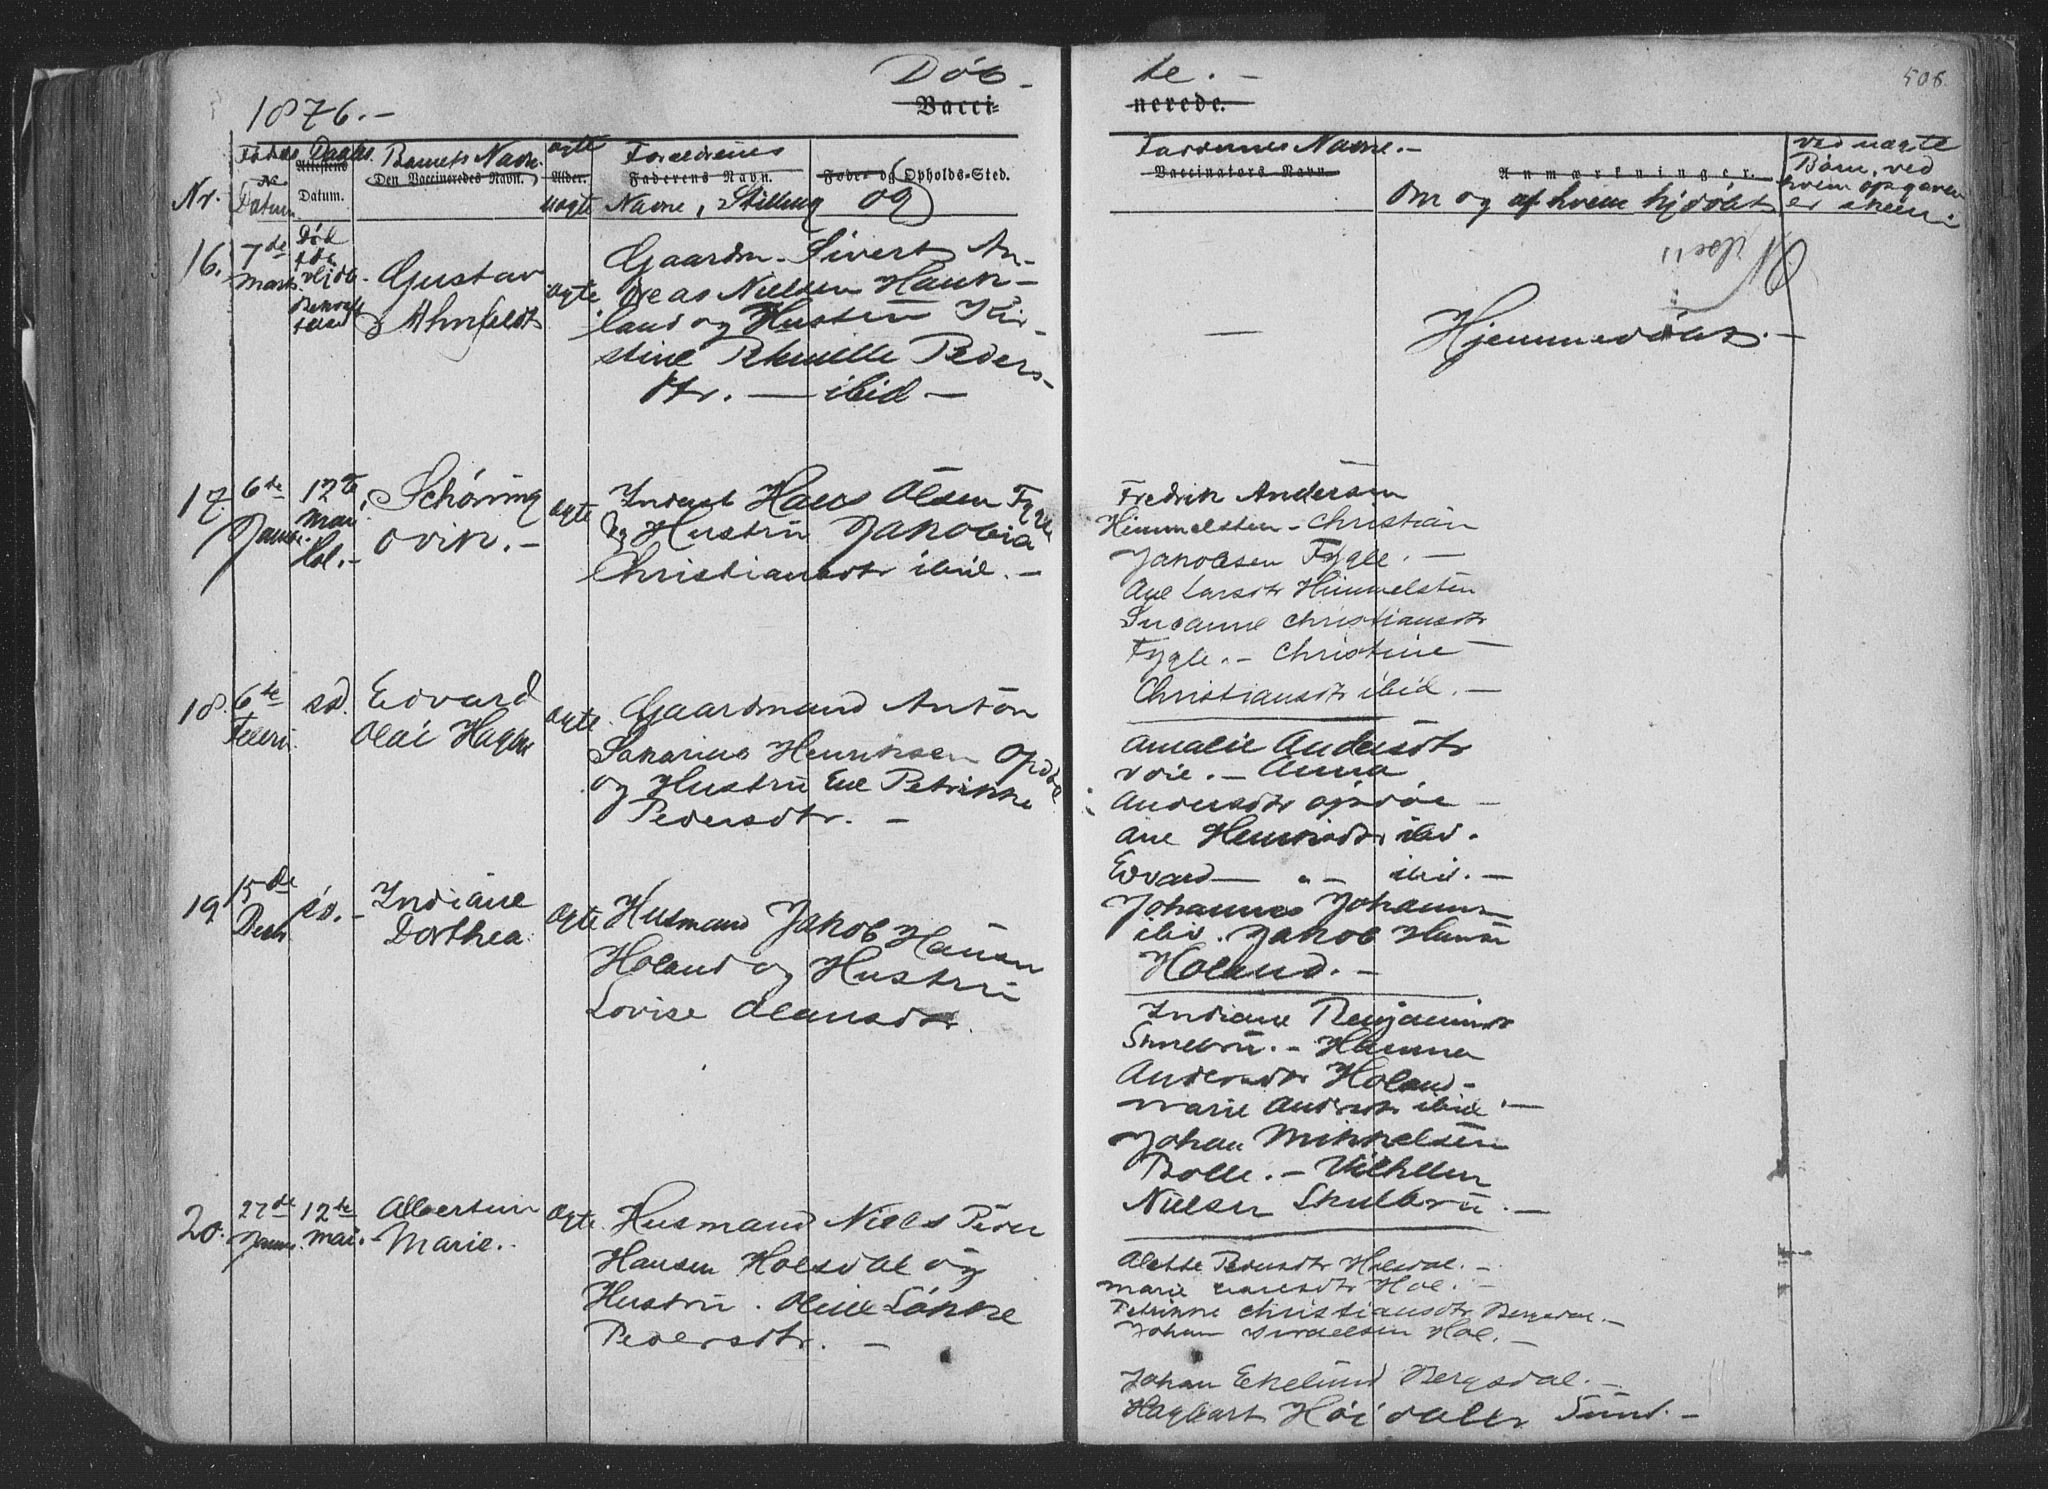 508.
1876.-
Døb-
te.-
Bacci=
nerede.
Nr.
Datum
Daabs
Attestens
Datum.
Barnets Navn.
Den Vaccineredes Navn.
ægte
Alder.
uægte
Forældrenes
Faderens Navn.
Navne, Stilling
Føde- og Opholds-Sted.
og
Faddernes Navne.-
Vaccinators Navn.
Anmærkninger.
Om og af hvem hjdøbt
ved uægte
Børn, ved
hvem opgaven
er skeet
16.
7de
Marts
Død
Gustav
Ahnfeldt
ægte
Gaardm. Sivert An-
dreas Nielsen Hauk-
land og Hustru Kir-
stine Petrnille Peders-
dtr. — ibid —
—
Hjemmedøbt.-
17.
6te
Janr.
12te
Mai
Hol.-
Schøning
Ovik.-
ægte
Inderst Hans Olsen Fygle
og Hustru Jakobia
Christiansdtr ibid.-
Fredrik Andersen
Himmelsten - Christian
Jakobsen Fygle.-
Ane Larsdtr Himmelsten
Susanne Christiansdtr
Fygle.- Christine
Christiansdtr ibid.-
18.
6te
Febru
sd.
Edvard
Olai Hagen
ægte.
Gaardmand Anton
Sakarius Henriksen Opdøl
og Hustru Ane Petrikke
Pedersdtr.-
Amalie Andersdtr
Voie.- Anna
Andersdtr Opdøl -
Ane Henriksdtr ibid.
Edvard — " — ibid.-
Johannes Johanns
ibid. Jakob Hansen
Holand.-
19
15de
Decb
sd.-
Indiane
Dorthea.
ægte
Husmand Jakob Hansen
Holand og Hustru
Lovise Olausdtr.
Indiane Benjaminsdtr
Skulbru.- Hanna
Andersdtr Holand-
Marie Andersdtr ibid.-
Johan Mikkelsen
Bolle.- Vilhelm
Nielsen Skulbru.-
20.
27de
Janu.
12te
Mai.
Albertine
Marie.-
ægte.
Husmand Niels Peder
Hansen Holsdal og
Hustru. Oline Løkke
Pedersdtr.-
Alette Pedersdtr Holsdal.-
Marie Larsdtr Hol.-
Petrikke Christiansdtr Bergsdal.-
Johan Israelsen Hol.-
Johan Ekelund Bergsdal.-
Hagbart Høidaler Sund.-